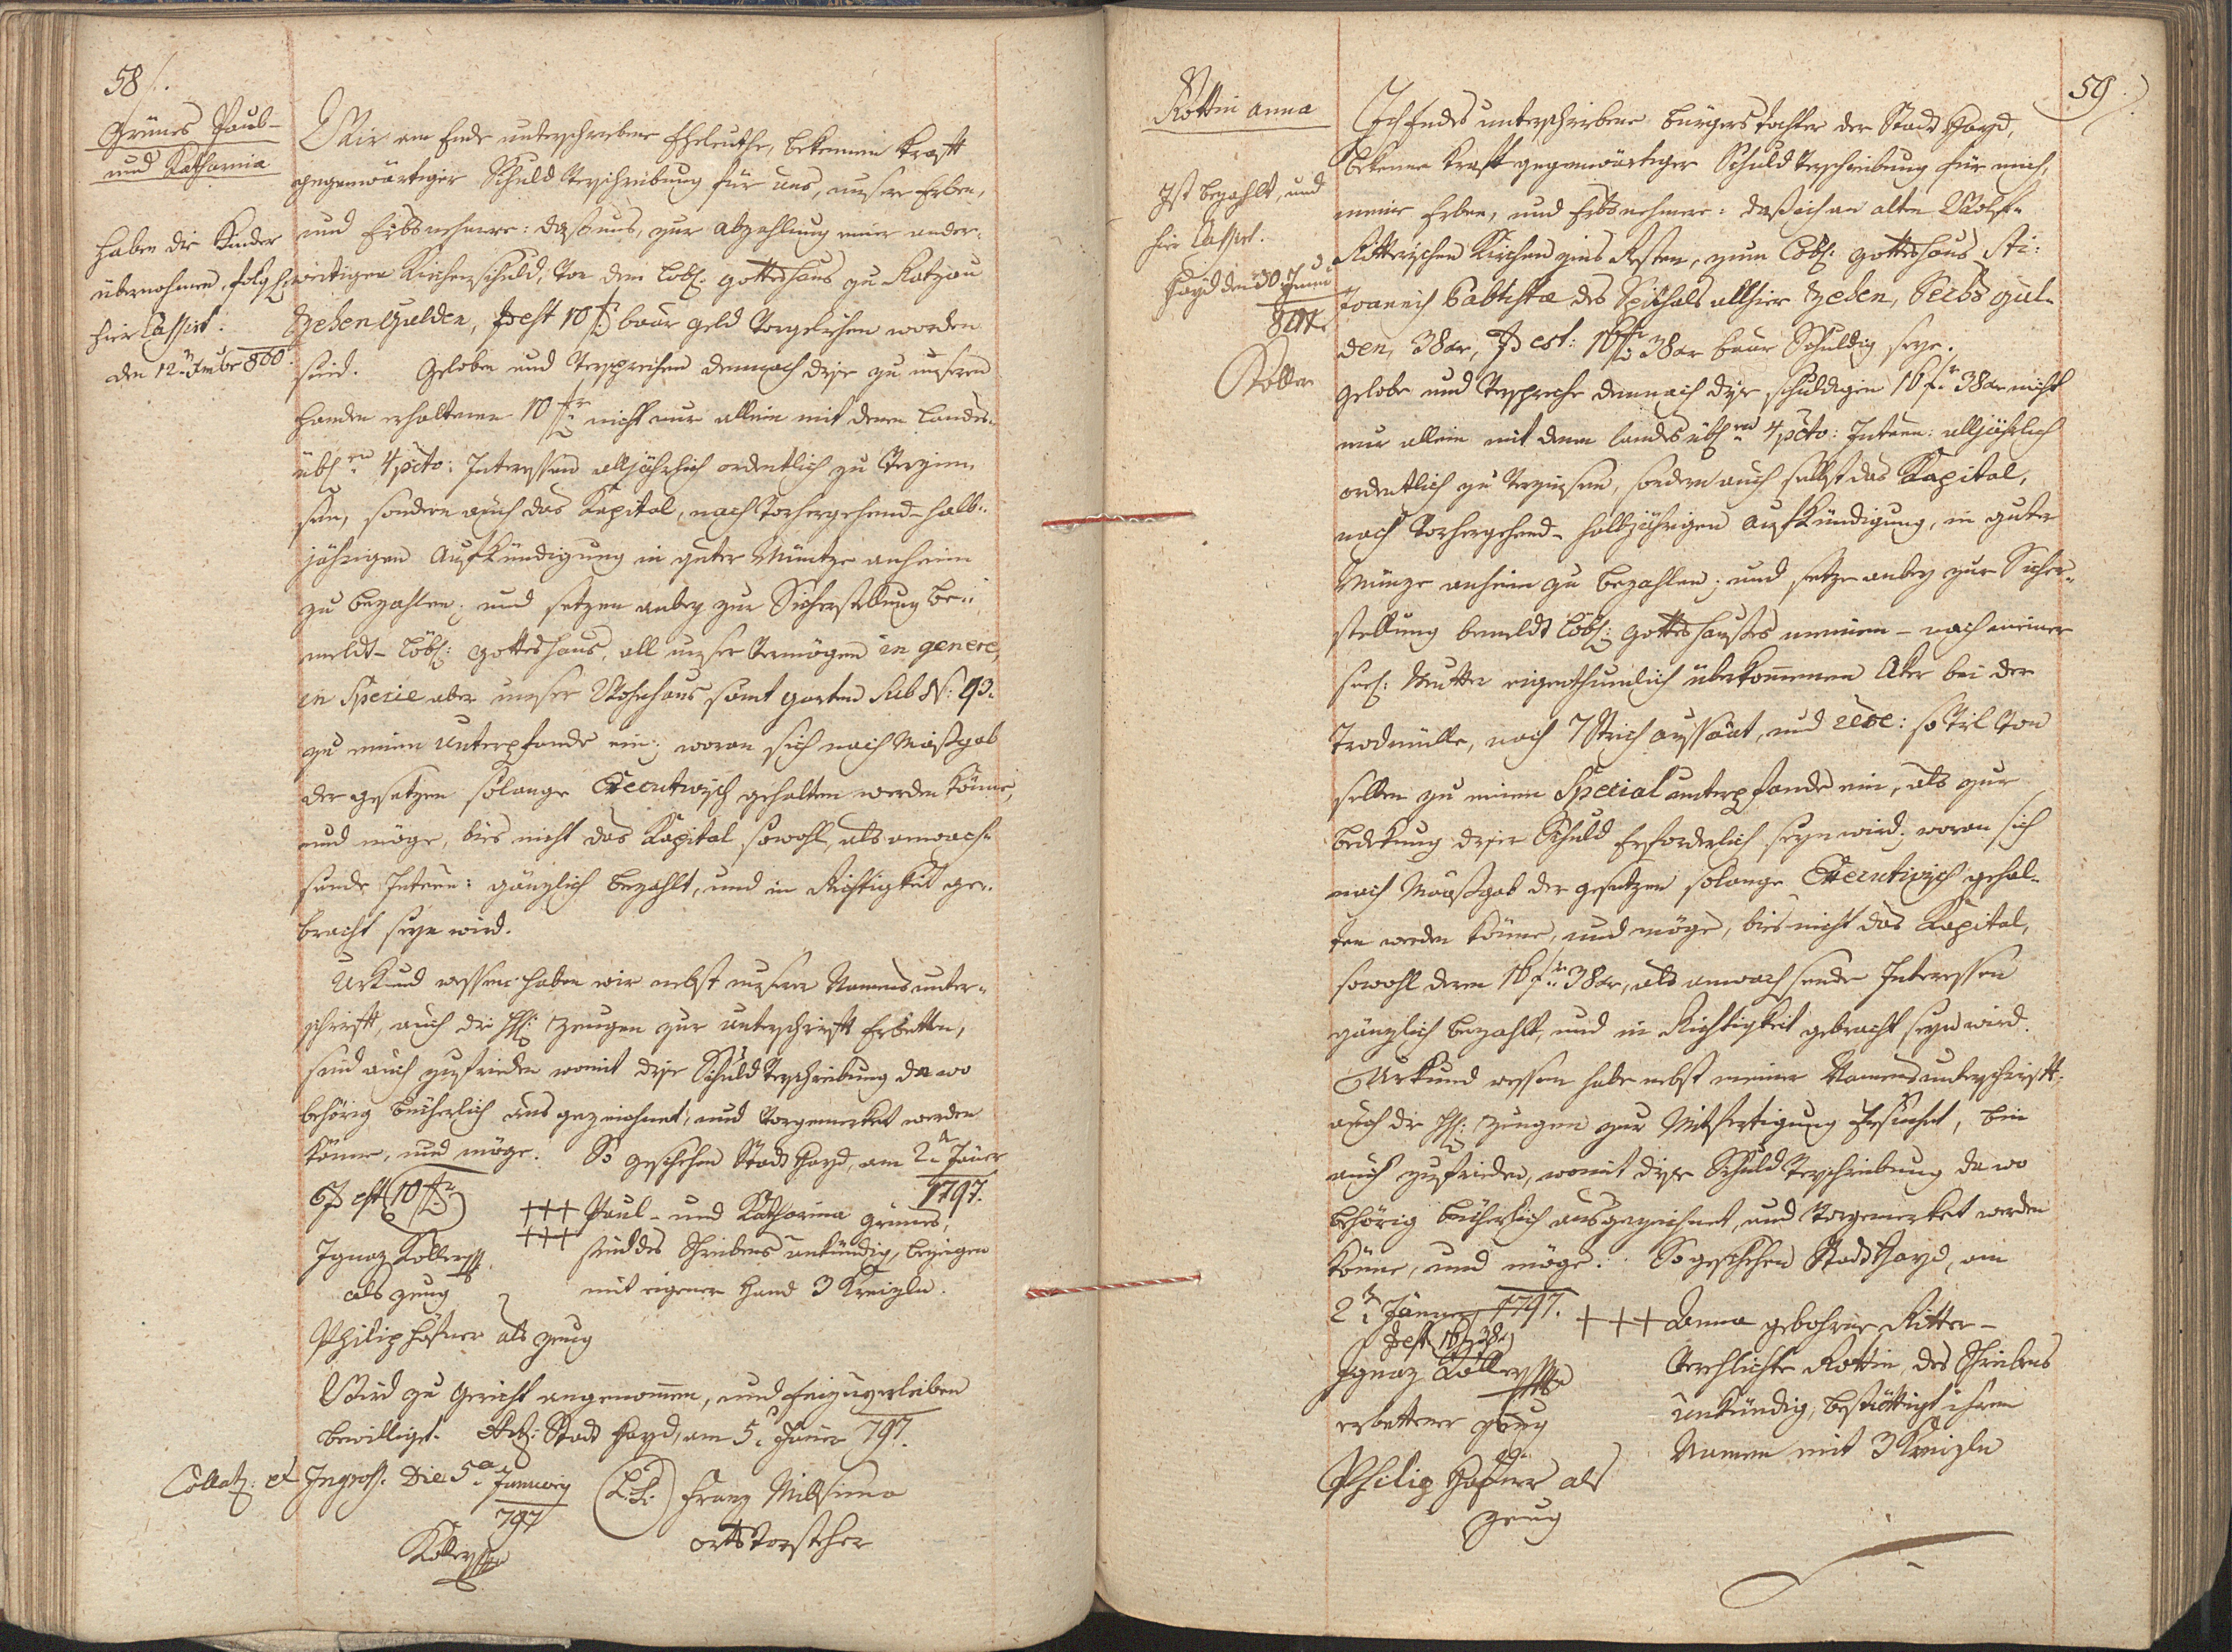 58/.
Grünes Paul-
und Katharina
haben die Kinder
übernohmen, folgl:
hier Cassirt.
den 12n Xmbr 800.
Wir am Ende unterschriebene Eheleuthe, bekennen Krafft
gegenwärtiger Schuld Verschreibung für uns, unsere Erben,
und Erbsnehmere: daß uns, zur abzahlung einer ander-
weitigen Kirchenschuld, von dem löbl: Gotteshaus zu Ratzau
Zehen Gulden, id est 10 f baar Geld vorgeliehen worden
seind. Geloben und versprechen demnach diese zu unseren
Handen erhaltenen 10 f nicht nur allein mit denen Landes-
übl:en 4 pcto: Interessen alljährlich ordentlich zu verzin-
sen, sondern auch das Kapital, nach vorhergehend-halb-
jähriger Aufkündigung in guter Müntze anheim
zu bezahlen; und setzen anbey zur Sicherstellung be-
meldt- löbl: Gotteshaus, all unser Vermögen in genere,
in Specie aber unser Wohnhaus samt Garten sub N: 93.
zu einem Unterpfande ein; woran sich nach Maßgab
der Gesetzen solange Executivisch gehalten werden könne,
und möge, bies nicht das Kapital sowohl, als anwach-
sende Intereen: gänzlich bezahlt, und in Richtigkeit ge-
bracht seyn wird.
Urkund dessen haben wir nebst unserer Namensunter-
schrifft, auch die H: Zeugen zur Unterschrifft Erbetten,
sind auch zufrieden womit diese Schuld Verschreibung da wo
behörig bücherlich aus gezeichnet, und vorgemerket werden
könne, und möge. So geschehen Stadt Hayd, am 2n Jäner
1797.
Id est (10 f)
+++ Paul- und Katharina Grünes,
+++ seind des Schreibens unkündig, bezeigen
mit eigener Hand 3 Kreizln.
Ignaz Koller
als Zeug
Philip Hafner als Zeug
Wird zu Gericht angenommen, und Einzuverleiben
bewilliget. Stadt Hayd, am 5n Jäner 797.
Collat: et Ingross. Die 5a January
797
Koller
(L.S.) Franz
ortsvorsteher
59.
Rottin Anna
Ist bezahlt, und
hier Cassirt.
Hayd den 30
Koller
Ich Endes unterschriebene bürgerstochter der Stadt Hayd,
bekenne Krafft gegenwärtiger Schuld Verschreibung für mich,
meine Erben, und Erbsnehmere: daß ich an alten Wolf-
Ritterischen Kirchen zins Resten, zum löbl: Gotteshaus Sti:
Joannis Babtistae des Spithals allhier Zehen, Sechs Gul-
den, 38 xr, id est: 16 f 38 xr baar Schuldig seye.
Gelobe und verspreche demnach diese schuldigen 16 f 38 xr nicht
nur allein mit denen landes übl:en 4 pcto: Intereen: alljährlich
ordentlich zu verzinsen, sondern auch selbst das Kapital,
nach vorhergehend- halbjähriger Aufkündigung, in guter
Münze anheim zu bezahlen; und setze anbey zur Sicher-
stellung bemeldt löbl: Gotteshauses meinen- nach meiner
seel: Mutter eigenthumlich überkommenen Aker bei der
Trodmülle, nach 7 Strich aussaat, und : so viel von
selben zu einem Special unterpfande ein, als zur
bedekung dieser Schuld Erforderlich seyn wird; woran sich
nach Maaßgab der Gesetzen solange Executivisch gehal-
ten werden könne, und möge, bies nicht das Kapital,
sowohl deren 16 f 38 xr, als anwachsende Interessen
gänzlich bezahlt, und in Richtigkeit gebracht seyn wird.
Urkund dessen habe nebst meiner Namensunterschrifft,
auch die H: Zeugen zur Mitfertigung Ersuchet, bin
auch zufrieden, womit diese Schuld Verschreibung da wo
behörig bücherlich ausgezeichnet, und vorgemerket werden
könne, und möge. So geschehen Stadt Hayd, am
2n Jänner 1797.
id est 16 f 38 xr
+++ Anna gebohrne Ritter-
Verehlichte Rottin, des Schreibens
unkündig, bestättigt ihren
Namen mit 3 Kreizln
Ignaz Koller
erbettener Zeug
Philip Hafner als
Zeug